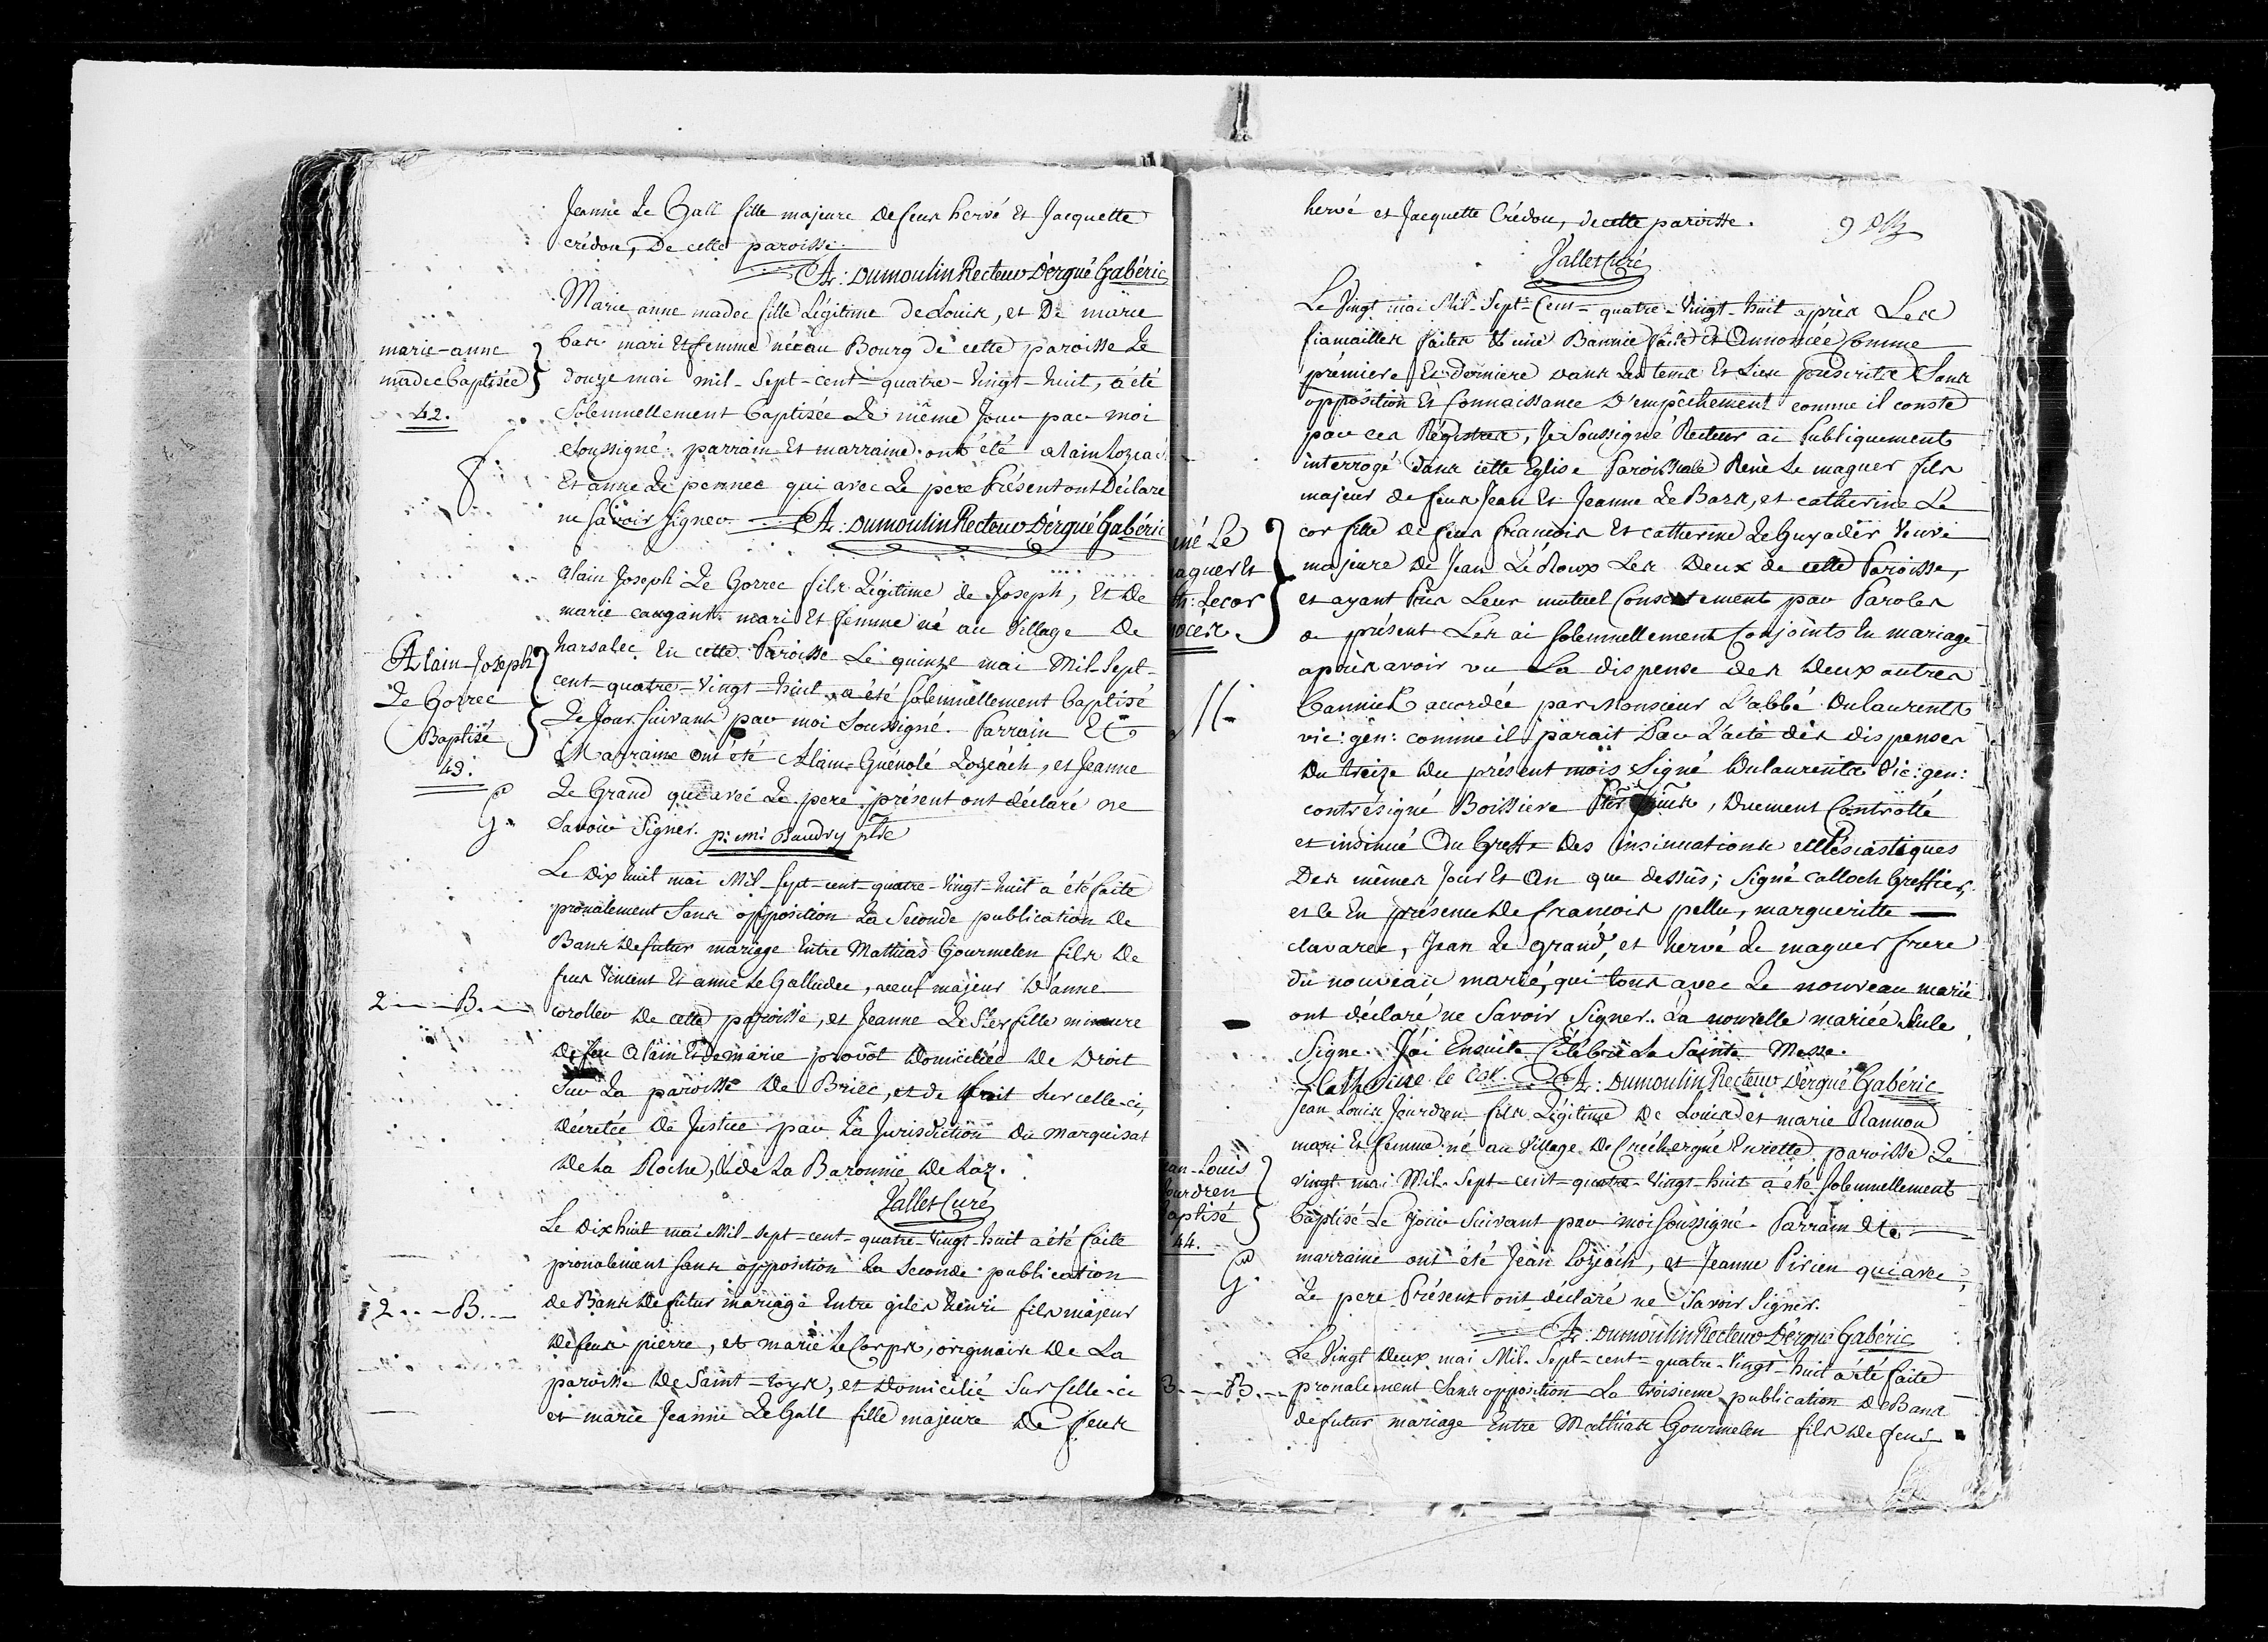 Jeanne Le Gall fille majeure de feus hervé Et Jacquette
crédou, De cette paroisse.
A: Dumoulin Recteur D'ergué Gabéric
Marie anne madec fille Légitime de Louis, et De marie
bars mari Et femme née au Bourg de cette paroisse Le
marie-anne
madec baptisée
42.
douze mai mil-sept-cent-quatre-vingt-huit, a été
Solemnellement baptisée Le même Jour par moi
Soussigné. parrain Et marraine ont été alain Lozeac
Et anne Le pennec qui avec Le pere Présent ont Déclaré
ne Savoir Signer. A: Dumoulin Recteur D'ergué Gabéric
Alain Joseph Le Gorrec fils Légitime de Joseph, Et De
marie caugant mari Et femme né au Village De
Alain-Joseph
Le Gorrec
Baptisé
43.
G.
harsalec En cette Paroisse Le quinze mai Mil-Sept-
cent-quatre-Vingt-huit a été solemnellement baptisé
Le Jour suivant par moi Soussigné. Parrain Et
Marraine ont été Alain-Guénolé Lozeach, et Jeanne
Le Grand qui avec Le pere présent ont déclaré ne
Savoir Signer. p: m: Baudry ptre
Le Dix huit mai Mil-Sept-cent-quatre-Vingt-huit a été faite
pronalement Sans opposition La Seconde publication De
Bans De futur mariage Entre Mathias Gourmelen fils De
feus Vincent Et anne Le Galludec, veuf majeur D'anne
2 B.
coroller De cette paroisse, et Jeanne Le Ster fille mineure
De feu Alain Et De marie provôt Domiciliée De Droit
Sur La paroisse De Briec, et de fait Sur celle-ci,
Décretée De Justice par La Jurisdiction Du Marquisat
De La Roche, & de La Baronnie De Laz.
Jallet Curé
Le Dix huit mai Mil-Sept-cent-quatre-Vingt-huit a été faite
pronalement Sans opposition La Seconde publication
2 B.
de Bans De futur mariage Entre gilles henri fils majeur
De feus pierre, et marie Le Corps, originaire De La
paroisse De Saint-toyr, et Domicilié Sur Celle-ci
et marie Jeanne Le Gall fille majeure De feus
hervé et Jacquette Crédou, de cette paroisse.
Jallet Curé
Le Vingt mai Mil-Sept-Cent-quatre-Vingt-huit après Les
fiancailles faites Et une Bannie faite Et Annoncée Comme
premiere Et Derniere Dans Les tems Et Lieu prescrits Sans
opposition Et Connaissance D'empêchement comme il conste
par ces Régistres, Je Soussigné Recteur ai Publiquement
interrogé Dans cette Eglise Paroissiale René Le maguer fils
majeur de feus Jean Et Jeanne Le Bars, et catherine Le
né Le
aguer Et
th: Le cor
oces.
cor fille De feus françois Et catherine Le Guyader Veuve
majeure De Jean Le Roux Les Deux de cette Paroisse,
et ayant Pris Leur mutuel Consentement par Paroles
de présent Les ai solemnellement Conjoints En mariage
après avoir vu La dispense des Deux autres
Bannies accordée par Monsieur L'abbé Dulaurents
vic: gén: comme il parait Par L'acte des dispenses
Du treize Du présent mois Signé Dulaurents Vic: gen:
contresigné Boissiere , Duement Controllé
et insinué Au Greffe Des insinuations ecclésiastiques
Des mêmes Jour Et An que dessus; Signé Calloch Greffier,
et ce En présence De françois pellu, margueritte
clavarec, Jean Le grand, et hervé Le maguer frere
du nouveau marié, qui tous avec Le nouveau marié
ont déclaré ne Savoir Signer. La nouvelle mariée Seule
Signe. J'ai Ensuite Célébré La Sainte Messe.
Catherine le Cor A: Dumoulin Recteur D'ergué Gabéric
Jean Louis Jourdren fils Légitime De Louis et marie Rannou
mari Et femme né au Village De Crec'hergué En cette paroisse Le
an-Louis
ourdren
aptisé
44.
G.
vingt mai Mil-Sept-cent-quatre-Vingt-huit a été solemnellement
baptisé Le Jour Suivant par moi soussigné. Parrain Et
marraine ont été Jean Lozeach, et Jeanne Pirien qui avec
Le pere Présent ont déclaré ne Savoir Signer.
A: Dumoulin Recteur D'ergué Gabéric
Le Vingt Deux mai Mil-Sept-cent-quatre-Vingt-huit a été faite
3 B.
pronalement Sans opposition La troisieme publication De Bans
de futur mariage Entre Mathias Gourmelen fils De feus